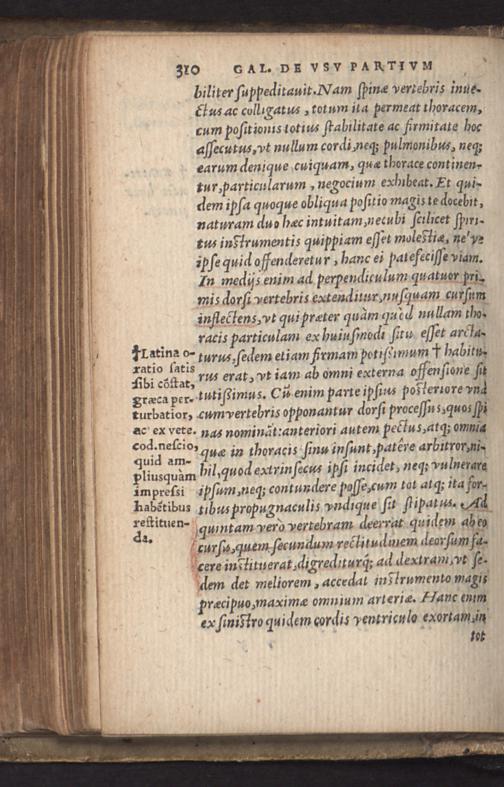 310 GAL. DE VSV PARTIVM
biliter suppeditauit. Nam spinæ vertebris inue-
ctus ac colligatus, totum ita permeat thoracem,
cum positionis totius stabilitate ac firmitate hoc
assecutus, vt nullum cordi, neq; pulmonibus, neq;
earum denique cuiquam, quæ thorace continen-
tur, particularum, negocium exhibeat. Et qui-
dem ipsa quoque obliqua positio magis te docebit,
naturam duo hæc intuitam, necubi scilicet spiri-
tus instrumentis quippiam esset molestiæ, ne'ue
ipse quid offenderetur, hanc ei patefecisse viam.
In medijs enim ad perpendiculum quatuor pri-
mis dorsi vertebris extenditur, nusquam cursum
inflectens, vt qui præter quàm quòd nullam tho-
racis particulam ex huiusmodi situ esset arcta-
turus, sedem etiam firmam potißimum † habitu-
rus erat, vt iam ab omni externa offensione sit
tutißimus. Cū enim parte ipsius posteriore vnà
cum vertebris opponantur dorsi processus, quos spi
nas nominãt: anteriori autem pectus, atq; omnia
quæ in thoracis sinu insunt, patêre arbitror, ni-
hil, quod extrinsecus ipsi incidet, neq; vulnerare
ipsum, neq; contundere posse, cum tot atq; ita for-
tibus propugnaculis vndique sit stipatus. Ad
quintam verò vertebram deerrat quidem ab eo
cursu, quem secundum rectitudinem deorsum fa-
cere instituerat, digrediturq́; ad dextram, vt se-
dem det meliorem, accedat instrumento magis
præcipuo, maximæ omnium arteriæ. Hanc enim
ex sinistro quidem cordis ventriculo exortam, in
tot
†Latina o-
ratio satis
sibi cõstat,
græca per-
turbatior,
ac ex vete.
cod. nescio,
quid am-
pliusquàm
impressi
habẽtibus
restituen-
da.